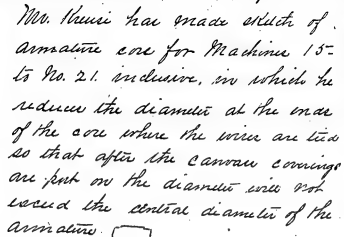 Mr. Kruesi has made sketch of
armature core for Machines 15-
to No. 21. inclusive, in which he
reduces the diameter at the ends
of the core where the wires are tied
so that after the canvas coverings
are put on the diameter will not
exceed the central diameter of the
armature.